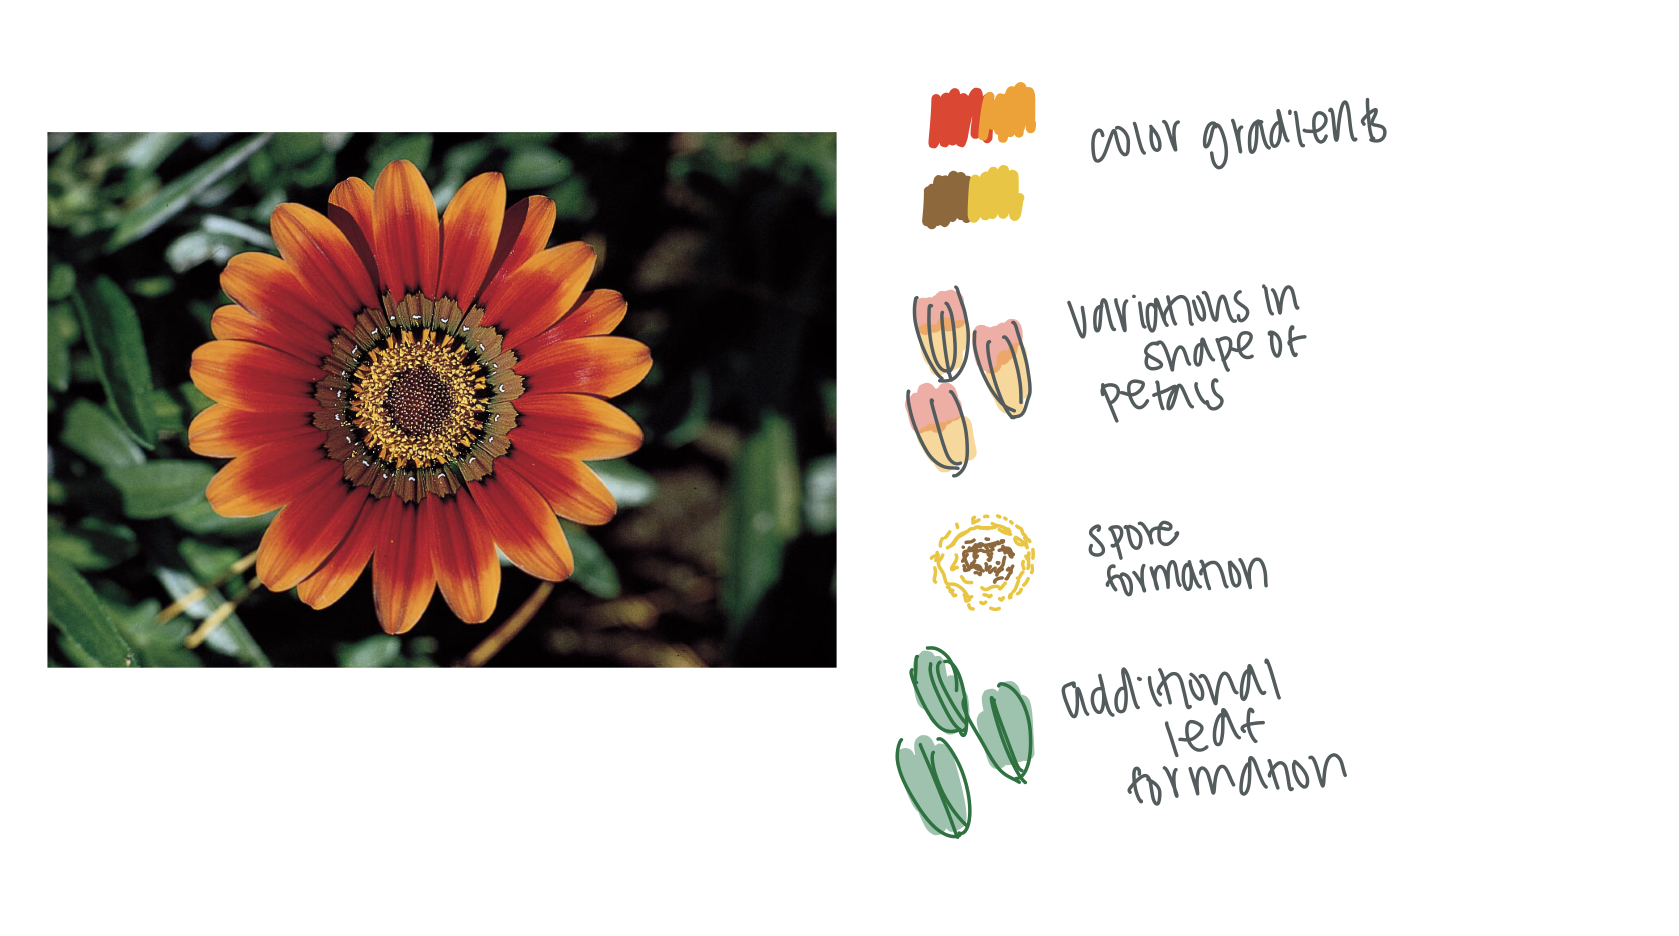 color gradients
variations in
shape of
petals
spore
formation
additional
leaf
formation